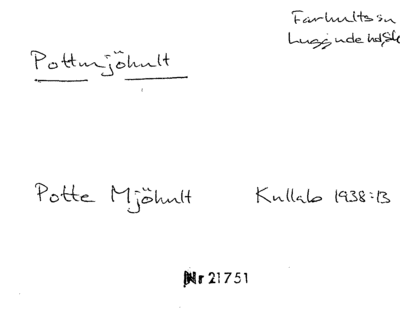 Farhults sn
Luggude hd, Sk
Pottmjöhult
Potte Mjöhult Kullabo 1938:13
Nr 21751